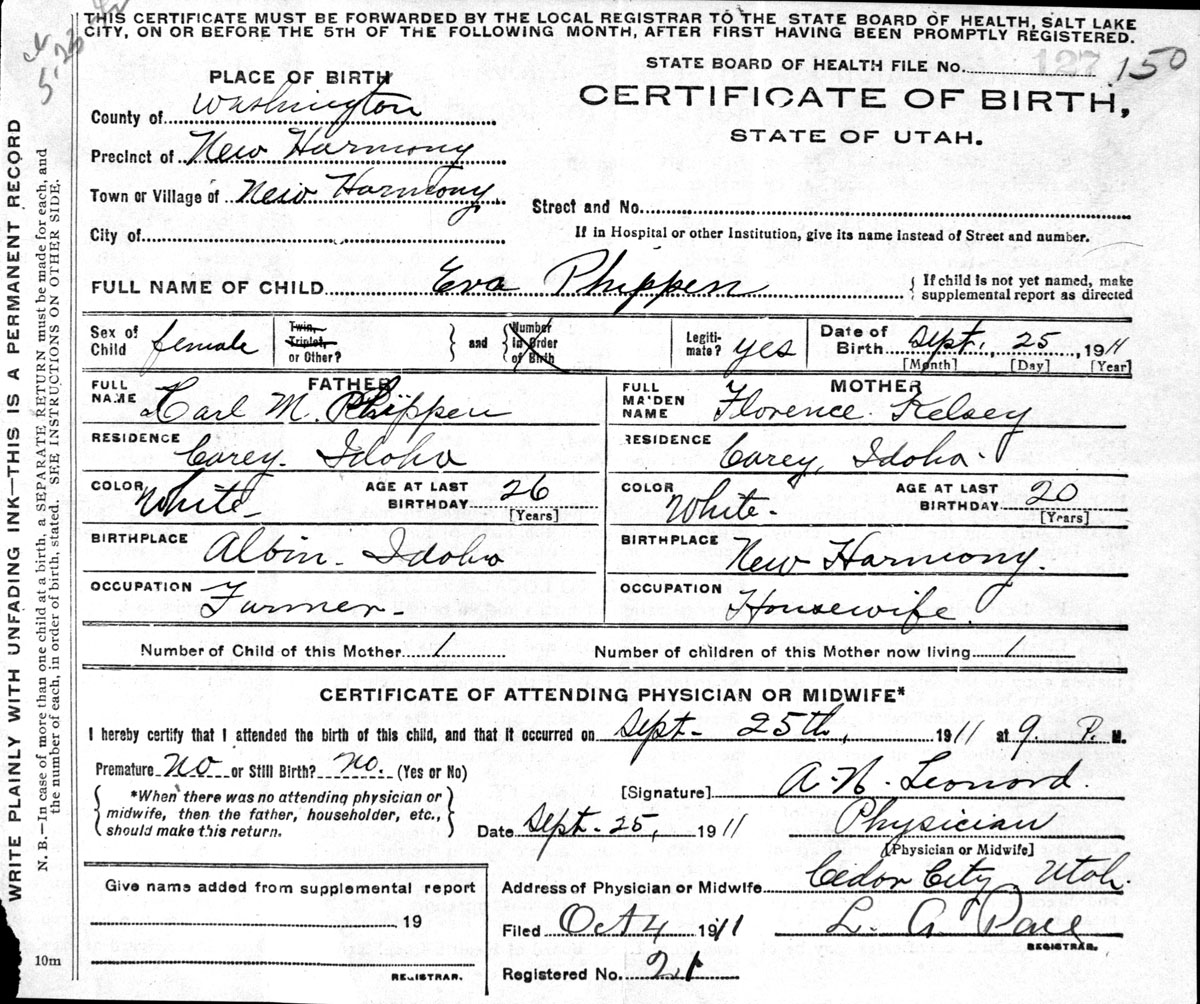 THIS CERTIFICATE MUST BE FORWARDED BY THE LOCAL REGISTRAR TO THE STATE BOARD OF HEALTH, SALT LAKE
CITY, ON OR BEFORE THE 5TH OF THE FOLLOWING MONTH, AFTER FIRST HAVING BEEN PROMPTLY REGISTERED.
STATE BOARD OF HEALTH FILE No. 127 150
CERTIFICATE OF BIRTH,
STATE OF UTAH.
PLACE OF BIRTH
County of Washington
Precinct of New Harmony
Town or Village of New Harmony
Street and No.
City of
If in Hospital or other Institution, give its name instead of Street and number.
FULL NAME OF CHILD Eva Phippen
{ If child is not yet named, make
supplemental report as directed
Sex of
Child female
Twin,
Triplet,
or Other?
} and {
Number
in Order
of Birth
Legiti-
mate? yes
Date of
Birth Sept. 25, 1911
[Month] [Day] [Year]
FATHER
FULL
NAME Carl M. Phippen
RESIDENCE Carey. Idoho
COLOR White
AGE AT LAST
BIRTHDAY 26
[Years]
BIRTHPLACE Albin. Idoho
OCCUPATION Farmer
MOTHER
FULL
MAIDEN
NAME Florence Kelsey
RESIDENCE Carey, Idoho
COLOR White
AGE AT LAST
BIRTHDAY 20
[Years]
BIRTHPLACE New Harmony.
OCCUPATION Housewife
Number of Child of this Mother 1
Number of children of this Mother now living 1
CERTIFICATE OF ATTENDING PHYSICIAN OR MIDWIFE*
I hereby certify that I attended the birth of this child, and that it occurred on Sept 25th, 1911 at 9 P. M.
Premature No or Still Birth? No. (Yes or No)
{ *When there was no attending physician or
midwife, then the father, householder, etc.,
should make this return. }
[Signature] A. N. Leonord
Date Sept. 25, 1911
Physician
[Physician or Midwife]
Address of Physician or Midwife Cedor City Utoh.
Filed Oct 4 1911 L. A. Pace
REGISTRAR.
Registered No. 21
Give name added from supplemental report
19
REGISTRAR.
WRITE PLAINLY WITH UNFADING INK—THIS IS A PERMANENT RECORD
N. B.—In case of more than one child at a birth, a SEPARATE RETURN must be made for each, and
the number of each, in order of birth, stated. SEE INSTRUCTIONS ON OTHER SIDE.
10m